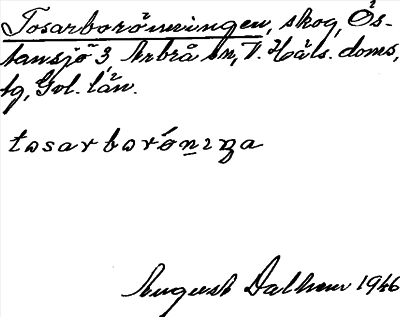 Tosarborönningen, skog, Ös-
tansjö 3 Arbrå sn, V. Häls. doms.
tg, Gvl. län.
tosarborónıŋa
August Dalhem 1946